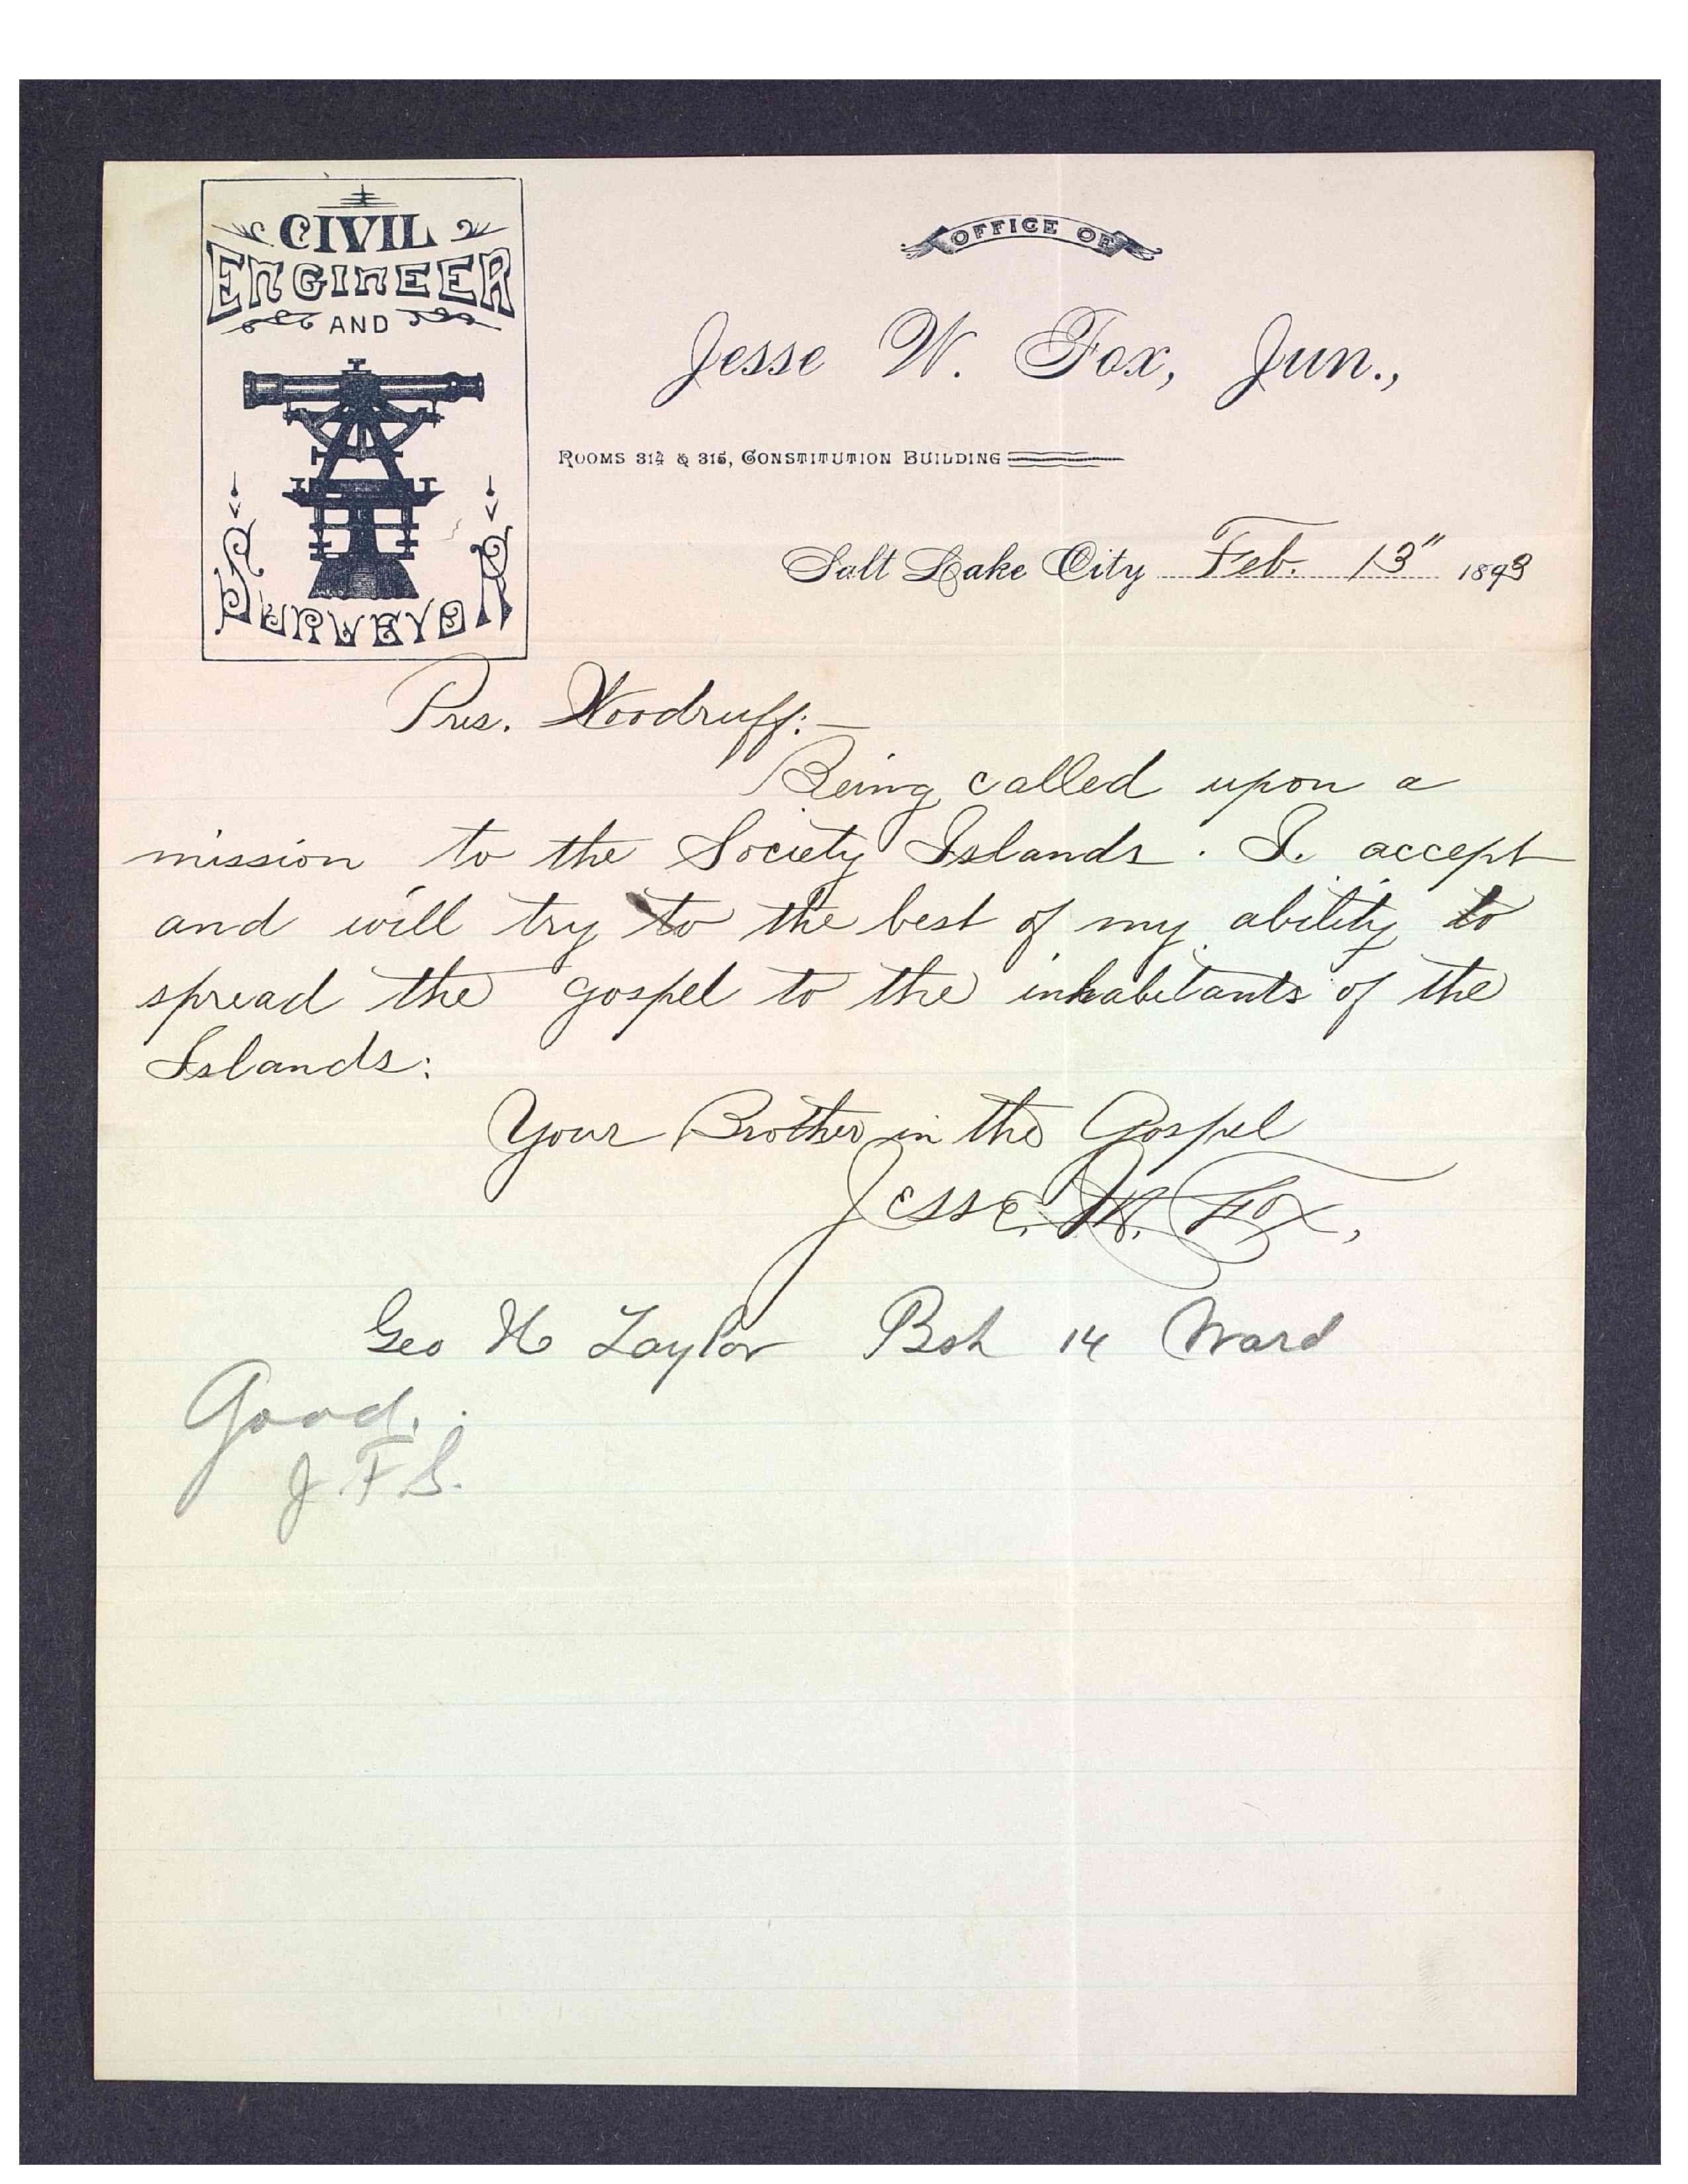 CIVIL
ENGINEER
AND
SURVEYOR
OFFICE OF
Jesse W. Fox, Jun.,
ROOMS 314 & 315, CONSTITUTION BUILDING
Salt Lake City Feb. 13" 1893
Pres. Woodruff:—
Being called upon a
mission to the Society Islands. I. accept
and will try to the best of my ability to
spread the gospel to the inhabitants of the
Islands:
Your Brother in the Gospel
Jesse. W. Fox,
Geo H Taylor Bsh 14 Ward
Good.
J. F. S.